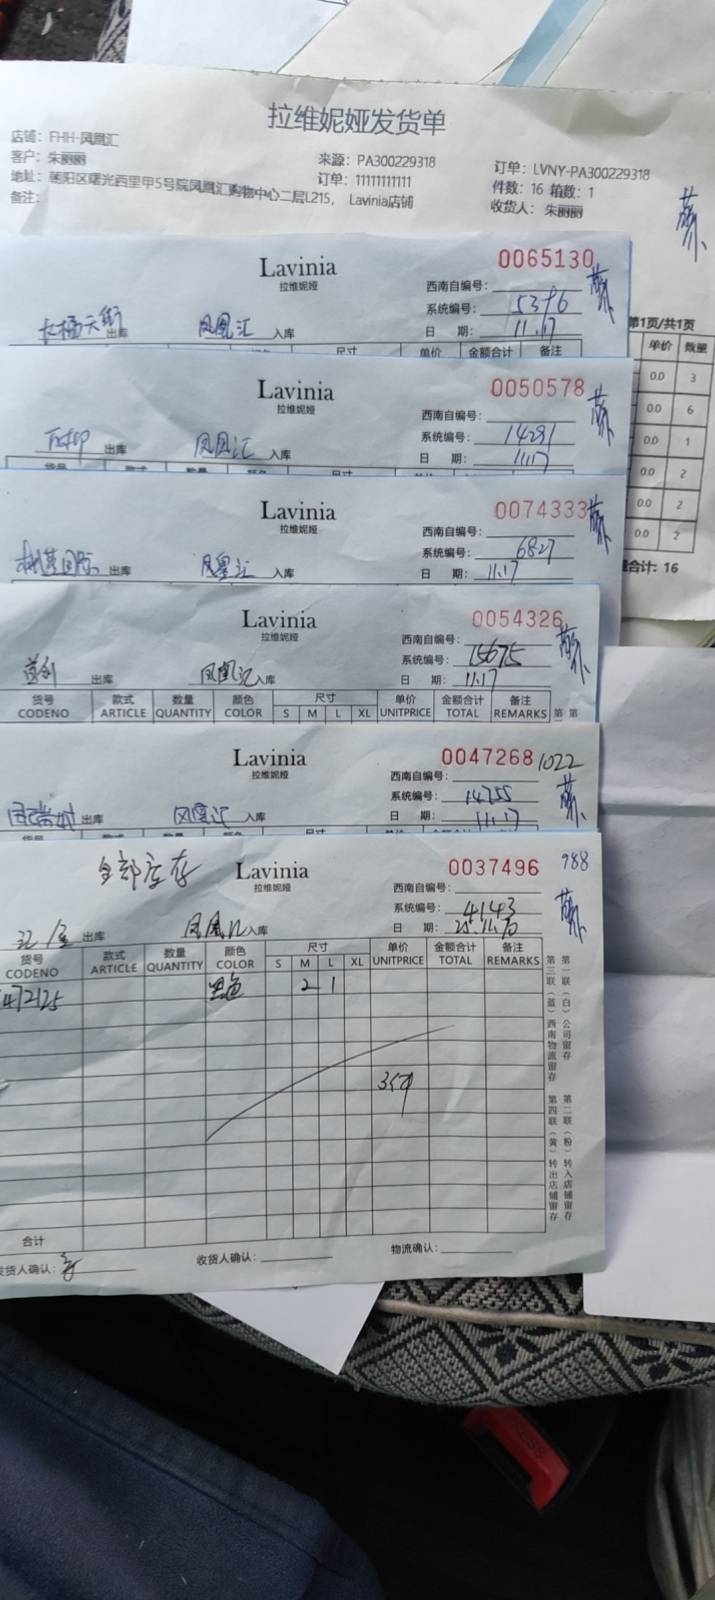 拉维妮娅发货单
店铺：FHH-凤凰汇
客户：朱丽丽
来源：PA300229318
订单：LVNY-PA300229318
地址：朝阳区曙光西里甲5号院凤凰汇购物中心二层L215， Lavinia店铺
订单：11111111111
件数：16 箱数：1
备注：
收货人： 朱丽丽
第1页/共1页
单价 数量
0.0 3
0.0 6
0.0 1
0.0 2
0.0 2
0.0 2
合计：16
Lavinia
拉维妮娅
0065130
西南自编号：
系统编号：5396
长楹天街 出库 凤凰汇 入库
日 期：11.17
尺寸 单价 金额合计 备注
Lavinia
拉维妮娅
0050578
西南自编号：
系统编号：14291
出库 凤凰汇 入库
日 期：11.17
Lavinia
拉维妮娅
0074333
西南自编号：
系统编号：6827
出库 凤凰汇 入库
日 期：11.17
Lavinia
拉维妮娅
0054326
西南自编号：
系统编号：15675
首创 出库 凤凰汇 入库
日 期：11.17
货号 款式 数量 颜色 尺寸 单价 金额合计 备注
CODENO ARTICLE QUANTITY COLOR S M L XL UNITPRICE TOTAL REMARKS
Lavinia
拉维妮娅
0047268 1022
西南自编号：
系统编号：14755
出库 凤凰汇 入库
日 期：11.17
全部库存
Lavinia
拉维妮娅
0037496 988
西南自编号：
系统编号：4143
出库 凤凰汇 入库
日 期：
货号 款式 数量 颜色 尺寸 单价 金额合计 备注
CODENO ARTICLE QUANTITY COLOR S M L XL UNITPRICE TOTAL REMARKS
472125 黑色 2 1
3件
第一联（白）公司留存
第二联（粉）转入店铺留存
第三联（蓝）西南物流留存
第四联（黄）转出店铺留存
合计
发货人确认：
收货人确认：
物流确认：